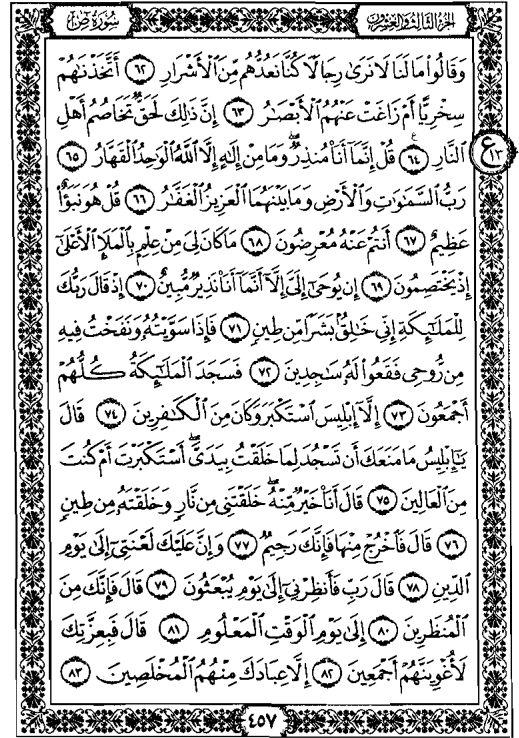 الجزء الثالث والعشرون سورة ص
وَقَالُوا۟ مَا لَنَا لَا نَرَىٰ رِجَالًا كُنَّا نَعُدُّهُم مِّنَ ٱلْأَشْرَارِ ٦٢ أَتَّخَذْنَٰهُمْ
سِخْرِيًّا أَمْ زَاغَتْ عَنْهُمُ ٱلْأَبْصَٰرُ ٦٣ إِنَّ ذَٰلِكَ لَحَقٌّ تَخَاصُمُ أَهْلِ
ٱلنَّارِ ٦٤ قُلْ إِنَّمَآ أَنَا۠ مُنذِرٌۖ وَمَا مِنْ إِلَٰهٍ إِلَّا ٱللَّهُ ٱلْوَٰحِدُ ٱلْقَهَّارُ ٦٥
ع ١٣
رَبُّ ٱلسَّمَٰوَٰتِ وَٱلْأَرْضِ وَمَا بَيْنَهُمَا ٱلْعَزِيزُ ٱلْغَفَّٰرُ ٦٦ قُلْ هُوَ نَبَؤٌا۟
عَظِيمٌ ٦٧ أَنتُمْ عَنْهُ مُعْرِضُونَ ٦٨ مَا كَانَ لِىَ مِنْ عِلْمٍۭ بِٱلْمَلَإِ ٱلْأَعْلَىٰٓ
إِذْ يَخْتَصِمُونَ ٦٩ إِن يُوحَىٰٓ إِلَىَّ إِلَّآ أَنَّمَآ أَنَا۠ نَذِيرٌ مُّبِينٌ ٧٠ إِذْ قَالَ رَبُّكَ
لِلْمَلَٰٓئِكَةِ إِنِّى خَٰلِقٌۢ بَشَرًا مِّن طِينٍ ٧١ فَإِذَا سَوَّيْتُهُۥ وَنَفَخْتُ فِيهِ
مِن رُّوحِى فَقَعُوا۟ لَهُۥ سَٰجِدِينَ ٧٢ فَسَجَدَ ٱلْمَلَٰٓئِكَةُ كُلُّهُمْ
أَجْمَعُونَ ٧٣ إِلَّآ إِبْلِيسَ ٱسْتَكْبَرَ وَكَانَ مِنَ ٱلْكَٰفِرِينَ ٧٤ قَالَ
يَٰٓإِبْلِيسُ مَا مَنَعَكَ أَن تَسْجُدَ لِمَا خَلَقْتُ بِيَدَىَّۖ أَسْتَكْبَرْتَ أَمْ كُنتَ
مِنَ ٱلْعَالِينَ ٧٥ قَالَ أَنَا۠ خَيْرٌ مِّنْهُۖ خَلَقْتَنِى مِن نَّارٍ وَخَلَقْتَهُۥ مِن طِينٍ
٧٦ قَالَ فَٱخْرُجْ مِنْهَا فَإِنَّكَ رَجِيمٌ ٧٧ وَإِنَّ عَلَيْكَ لَعْنَتِىٓ إِلَىٰ يَوْمِ
ٱلدِّينِ ٧٨ قَالَ رَبِّ فَأَنظِرْنِىٓ إِلَىٰ يَوْمِ يُبْعَثُونَ ٧٩ قَالَ فَإِنَّكَ مِنَ
ٱلْمُنظَرِينَ ٨٠ إِلَىٰ يَوْمِ ٱلْوَقْتِ ٱلْمَعْلُومِ ٨١ قَالَ فَبِعِزَّتِكَ
لَأُغْوِيَنَّهُمْ أَجْمَعِينَ ٨٢ إِلَّا عِبَادَكَ مِنْهُمُ ٱلْمُخْلَصِينَ ٨٣
٤٥٧